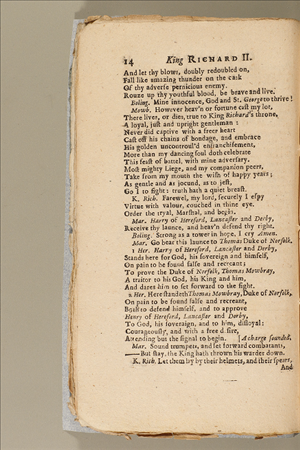 14 King RICHARD II.
And let thy blows, doubly redoubled on,
Fall like amazing thunder on the cask
Of thy adverse pernicious enemy.
Rouze up thy youthful blood, be brave and live.
Boling. Mine innocence, God and St. George to thrive!
Mowb. However heav'n or fortune cast my lot,
There lives, or dies, true to King Richard's throne,
A loyal, just and upright gentleman:
Never did captive with a freer heart
Cast off his chains of bondage, and embrace
His golden uncontroul'd enfranchisement,
More than my dancing soul doth celebrate
This feast of battel, with mine adversary.
Most mighty Liege, and my companion peers,
Take from my mouth the wish of happy years;
As gentle and as jocund, as to jest,
Go I to fight: truth hath a quiet breast.
K. Rich. Farewel, my lord, securely I espy
Virtue with valour, couched in thine eye.
Order the tryal, Marshal, and begin.
Mar. Harry of Hereford, Lancaster and Derby,
Receive thy launce, and heav'n defend thy right.
Boling. Strong as a tower in hope, I cry Amen.
Mar. Go bear this launce to Thomas Duke of Norfolk.
1 Her. Harry of Hereford, Lancaster and Derby,
Stands here for God, his sovereign and himself,
On pain to be found false and recreant;
To prove the Duke of Norfolk, Thomas Mowbray,
A traitor to his God, his King and him,
And dares him to set forward to the fight.
2 Her. Here standeth Thomas Mowbray, Duke of Norfolk,
On pain to be found false and recreant,
Both to defend himself, and to approve
Henry of Hereford, Lancaster and Derby,
To God, his sovereign, and to him, disloyal:
Courageously, and with a free desire,
Attending but the signal to begin. [A charge sounded.
Mar. Sound trumpets, and set forward combatants,
——But stay, the King hath thrown his warder down.
K. Rich. Let them lay by their helmets, and their spears,
And